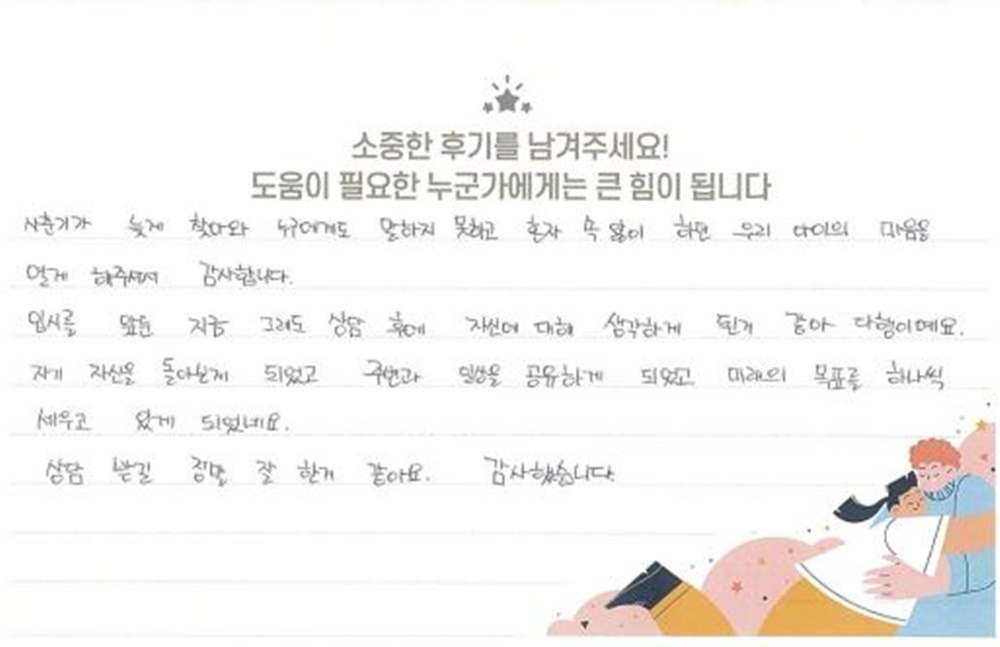 소중한 후기를 남겨주세요!
도움이 필요한 누군가에게는 큰 힘이 됩니다
사춘기가 늦게 찾아와 누구에게도 말하지 못하고 혼자 속 앓이 하던 우리 아이의 마음을
열게 해주셔서 감사합니다.
입시를 앞둔 지금 그래도 상담 후에 자신에 대해 생각하게 된거 같아 다행이예요.
자기 자신을 돌아보게 되었고 주변과 일상을 공유하게 되었고 미래의 목표를 하나씩
세우고 있게 되었네요.
상담 받길 정말 잘 한거 같아요. 감사했습니다.